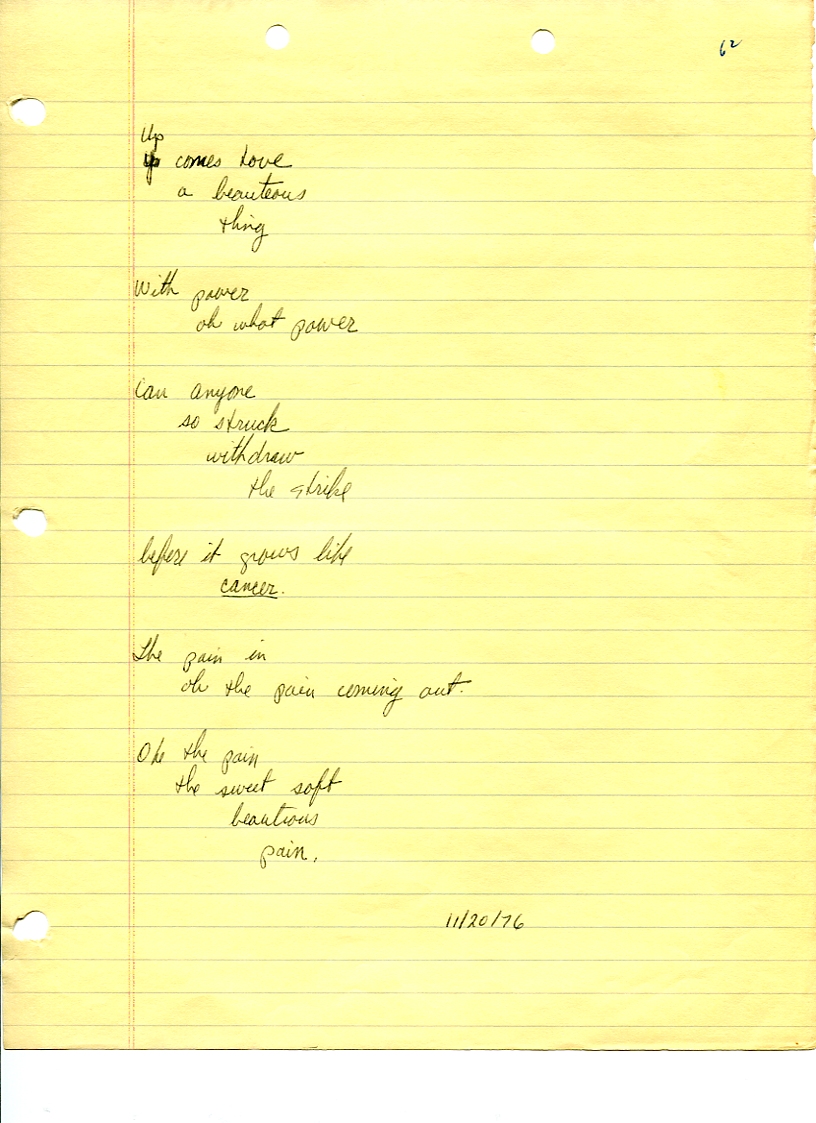 62
Up
up comes Love
a beauteous
thing
With power
oh what power
Can anyone
so struck
withdraw
the strike
before it grows like
cancer.
The pain in
oh the pain coming out.
Oh the pain
the sweet soft
beautious
pain.
11/20/76